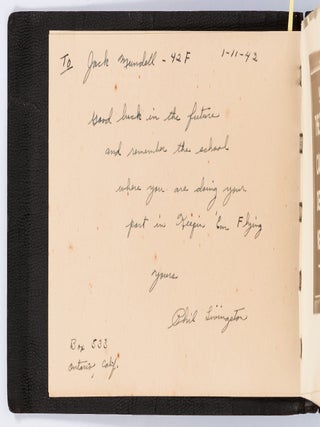 To Jack Mundell - 42F 1-11-42
Good luck in the future
and remember the school
where you are doing your
part in Keepin 'Em Flying
yours
Phil Livingston
Box 533
Ontario, Calif.